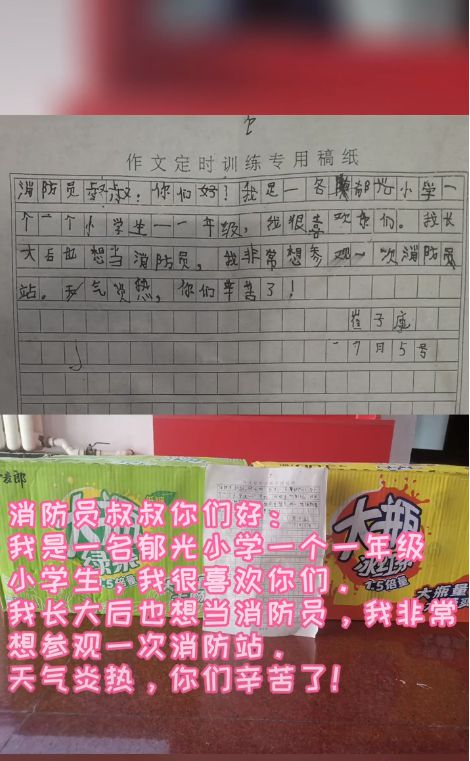 作文定时训练专用稿纸
消防员叔叔：你们好！我是一名郁光小学一
个一个小学生一一年级，我很喜欢你们。我长
大后也想当消防员，我非常想参观一次消防员
站。天气炎热，你们辛苦了！
崔子康
7月5号
麦郎
大瓶
绿茶
1.5倍量
大瓶
冰红茶
1.5倍量
大瓶量
消防员叔叔你们好：
我是一名郁光小学一个一年级
小学生，我很喜欢你们．
我长大后也想当消防员，我非常
想参观一次消防站．
天气炎热，你们辛苦了！